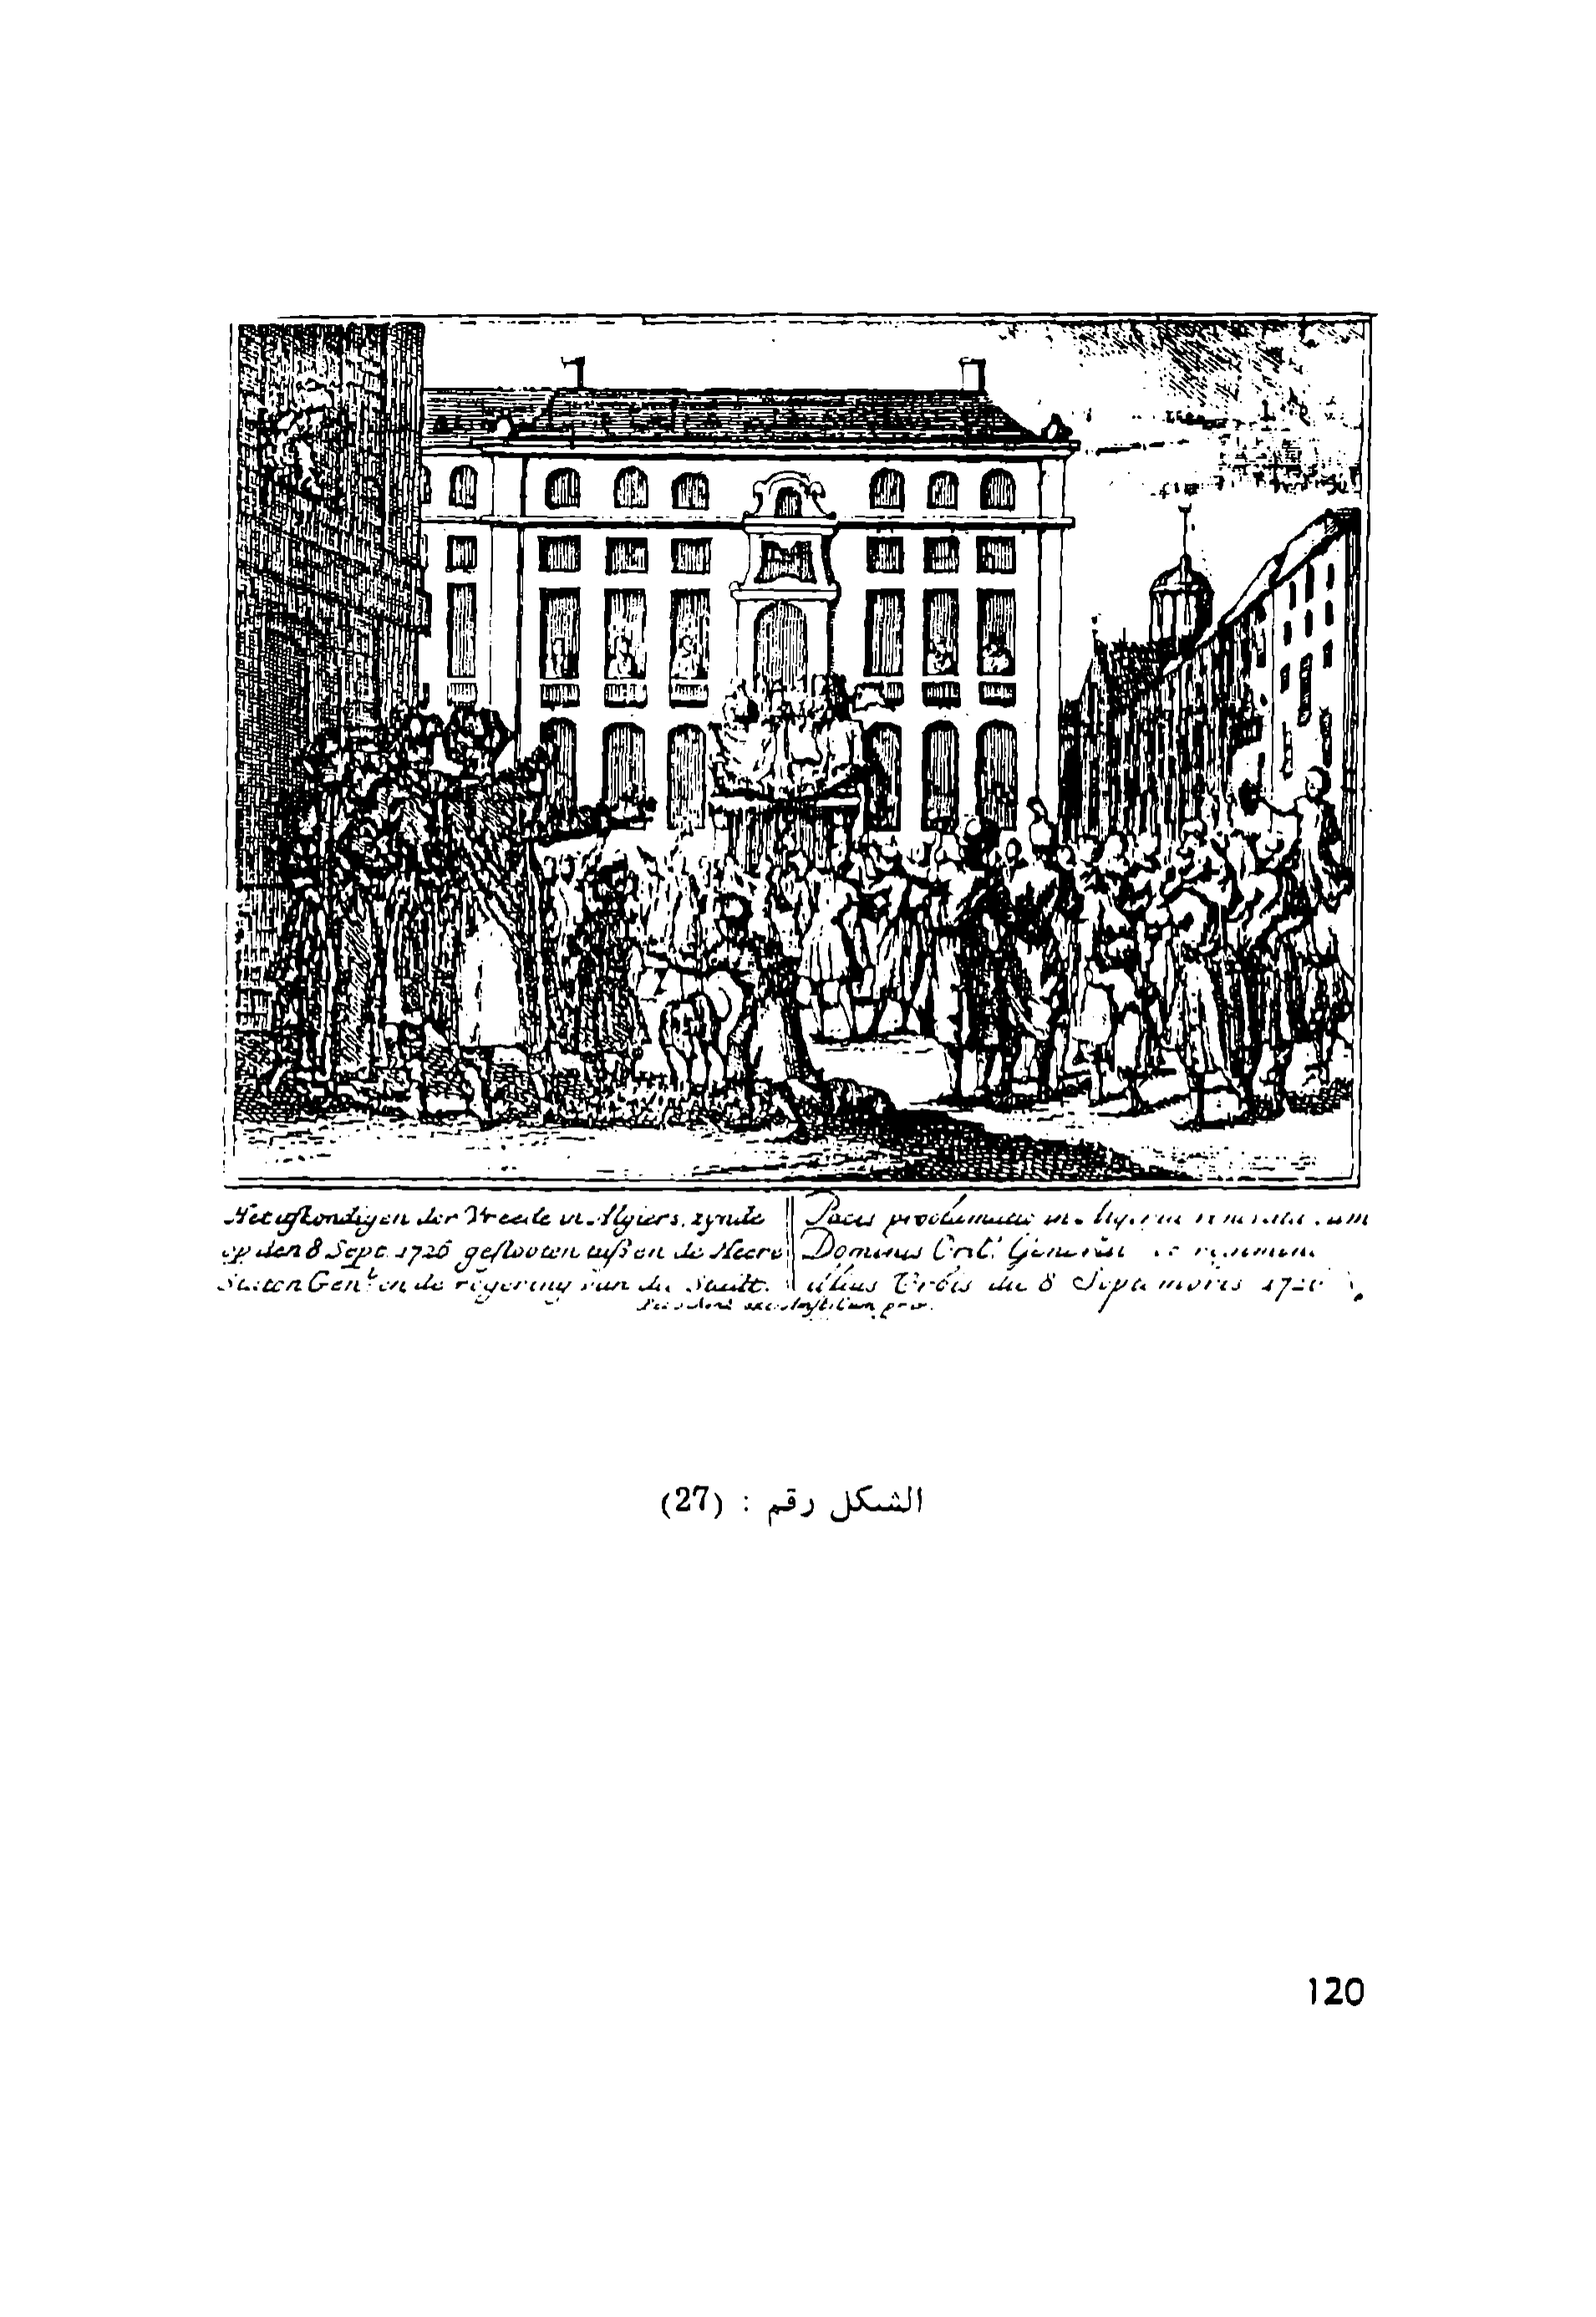 Het afkondigen der Vreede in Algiers, zynde
op den 8 Sept. 1726 geslooten tussen de Heere
Staten Gen.l en de regering van die Stadt.
Pacis proclamatio in
Dominus Ord. General
illius Urbis die 8 Septembris 1726
الشكل رقم : (27)
120